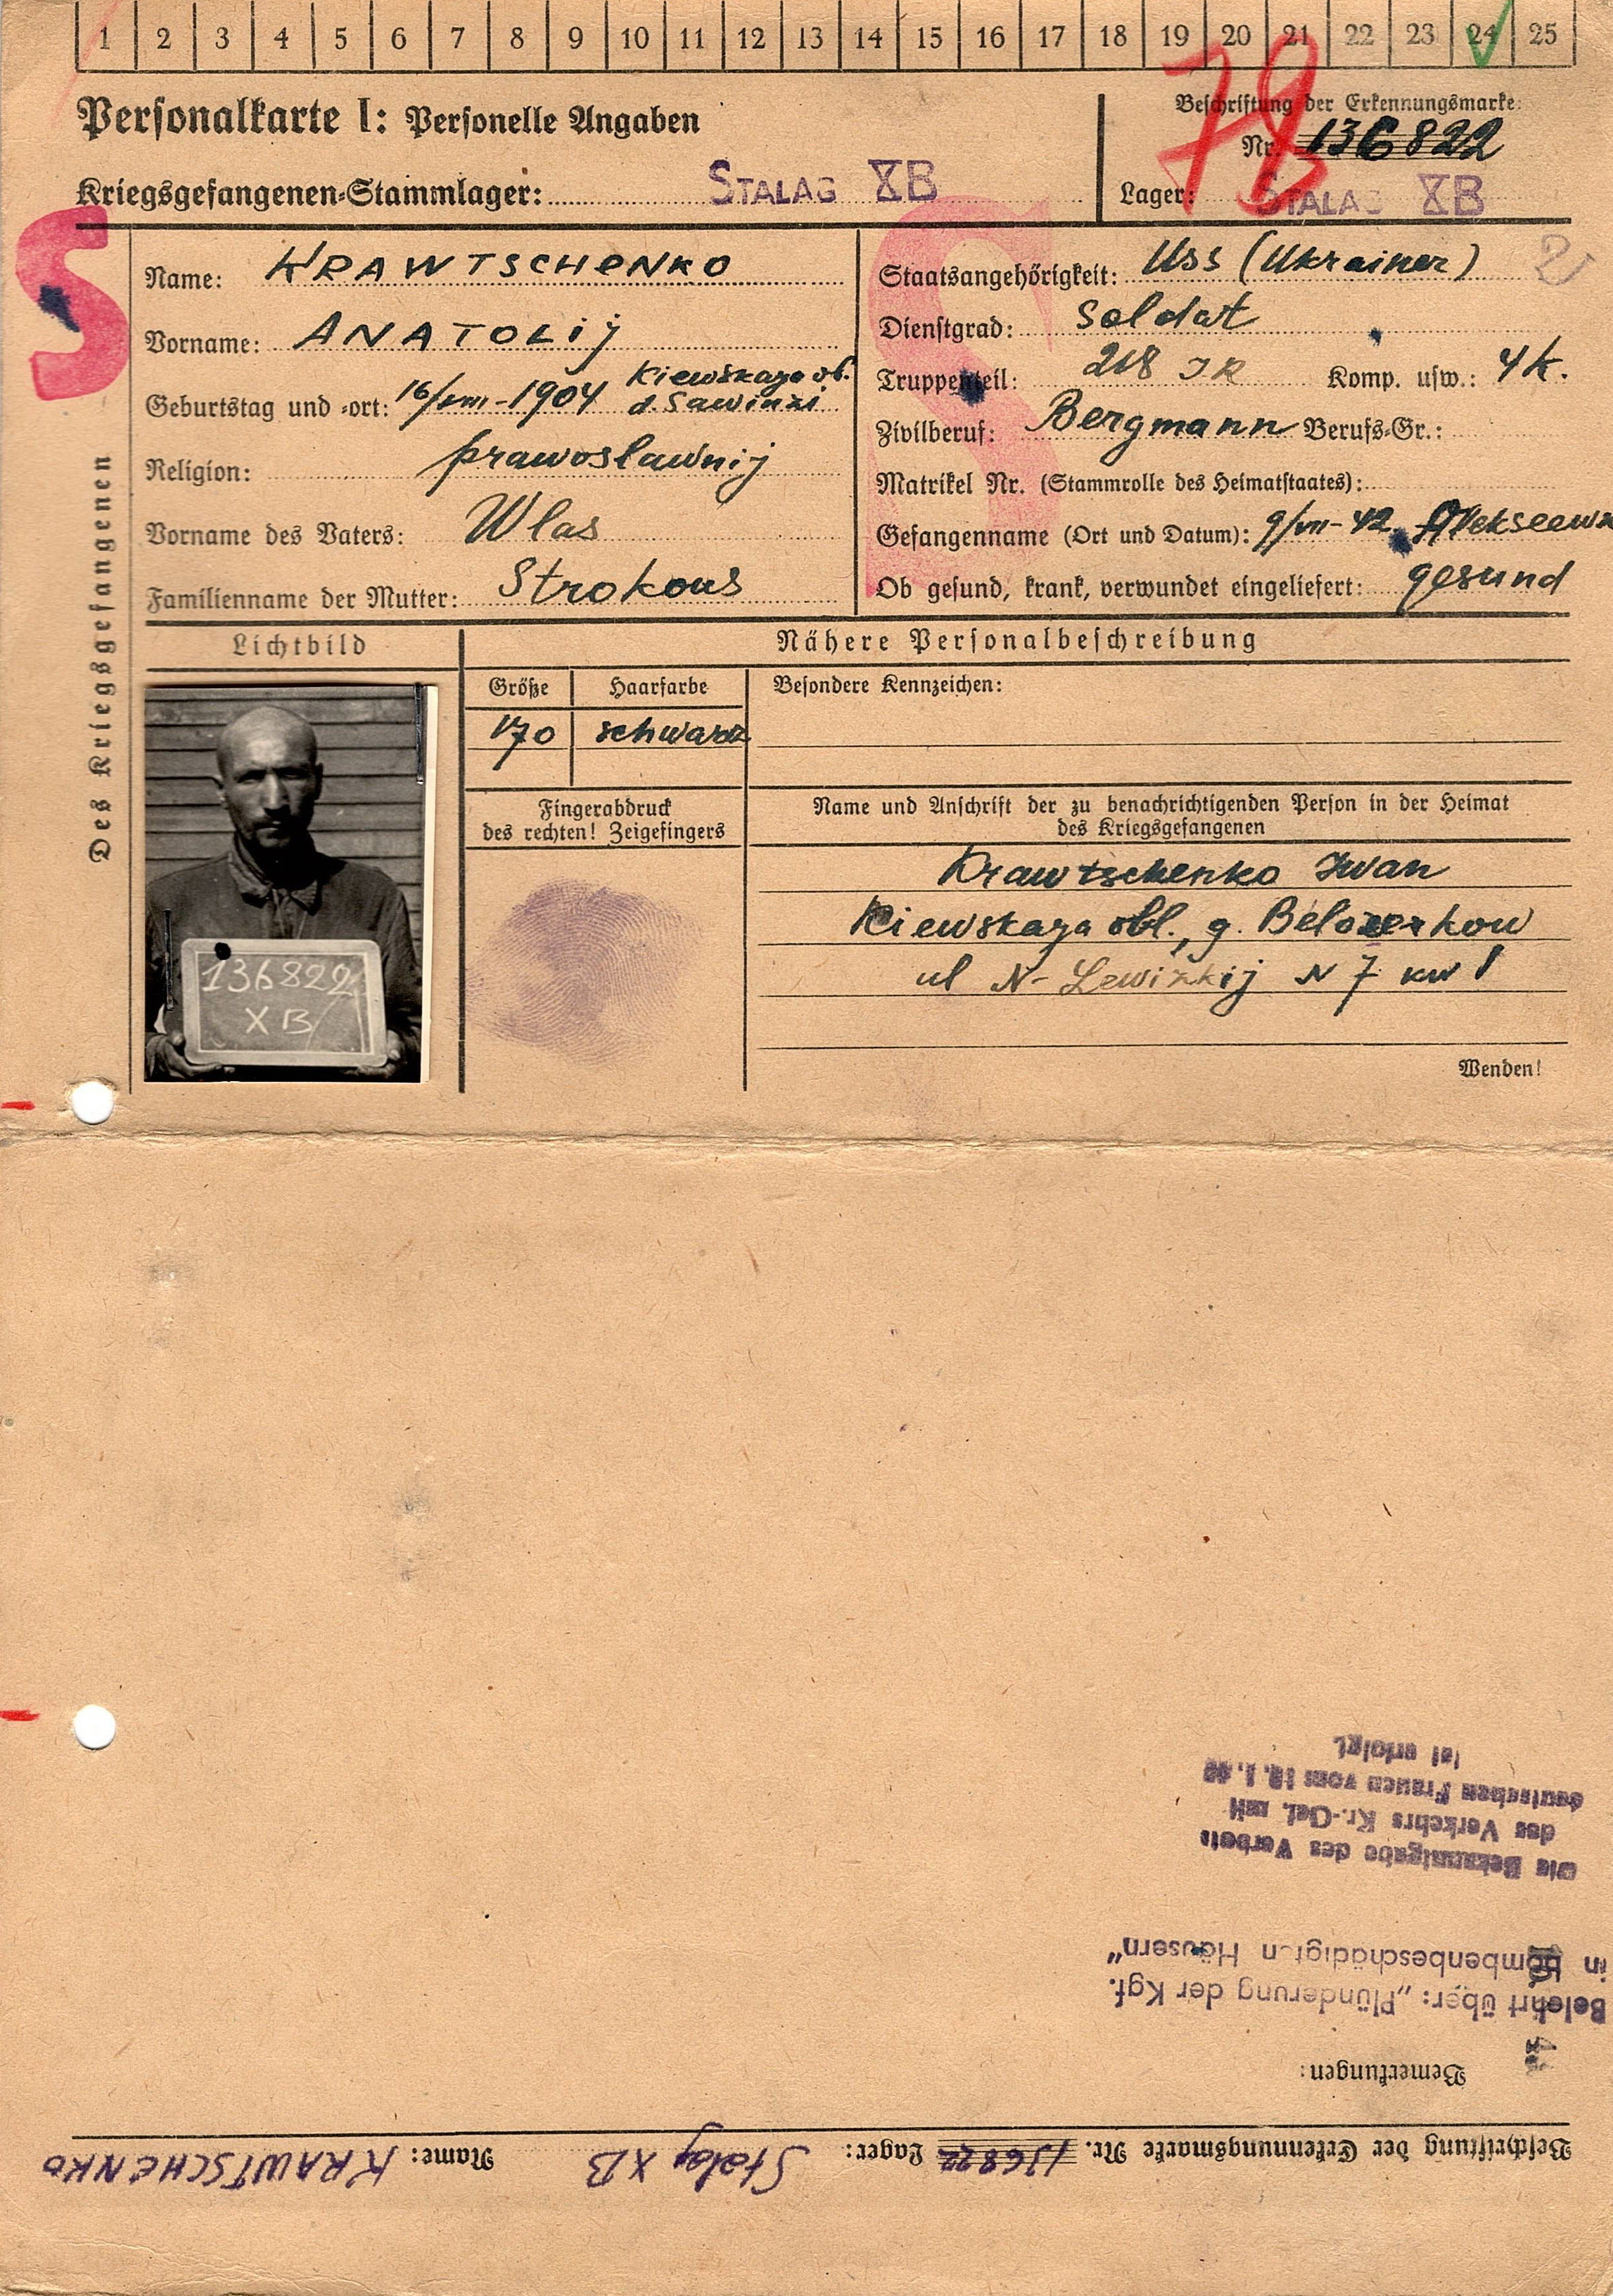 1 2 3 4 5 6 7 8 9 10 11 12 13 14 15 16 17 18 19 20 21 22 23 24 25
Personalkarte I: Personelle Angaben
Beschriftung der Erkennungsmarke:
Nr. 136822
Kriegsgefangenen-Stammlager: STALAG XB
Lager: STALAG XB
S
Des Kriegsgefangenen
Name: KRAWTSCHENKO
Vorname: ANATOLIJ
Geburtstag und -ort: 16/VIII-1904 Kiewskaya ob.
d. Sawinzi
Religion: prawoslawnij
Vorname des Vaters: Wlas
Familienname der Mutter: Strokous
Staatsangehörigkeit: Uss (Ukrainer)
Dienstgrad: Soldat
Truppenteil: 218 IR Komp. usw.: 4 K.
Zivilberuf: Bergmann Berufs-Gr.:
Matrikel Nr. (Stammrolle des Heimatstaates):
Gefangenname (Ort und Datum): 9/VII-42 Alekseewk
Ob gesund, krank, verwundet eingeliefert: gesund
Lichtbild
Nähere Personalbeschreibung
Größe Haarfarbe
170 schwarz
Besondere Kennzeichen:
Fingerabdruck
des rechten! Zeigefingers
Name und Anschrift der zu benachrichtigenden Person in der Heimat
des Kriegsgefangenen
Krawtschenko Iwan
Kiewskaya obl., g. Belozerkow
ul N-Lewizkij N 7 kw 1
136822
XB
Wenden!
Beschriftung der Erkennungsmarke Nr. 136822 Lager: Stalag XB Name: KRAWTSCHENKO
Bemerkungen:
Belehrt über: „Plünderung der Kgf.
in bombenbeschädigten Häusern"
Die Bekanntgabe des Verbots
des Verkehrs Kr.-Gef. mit
deutschen Frauen vom
ist erfolgt